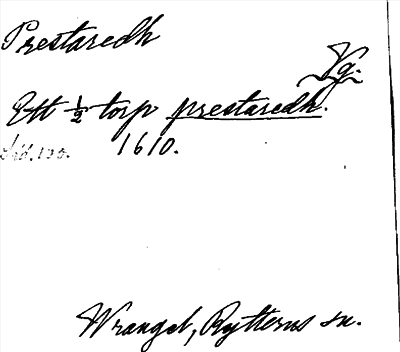 Prestaredh
Vg.
Ett ½ torp prestaredh.
1610.
Wrangel, Rytterns sn.